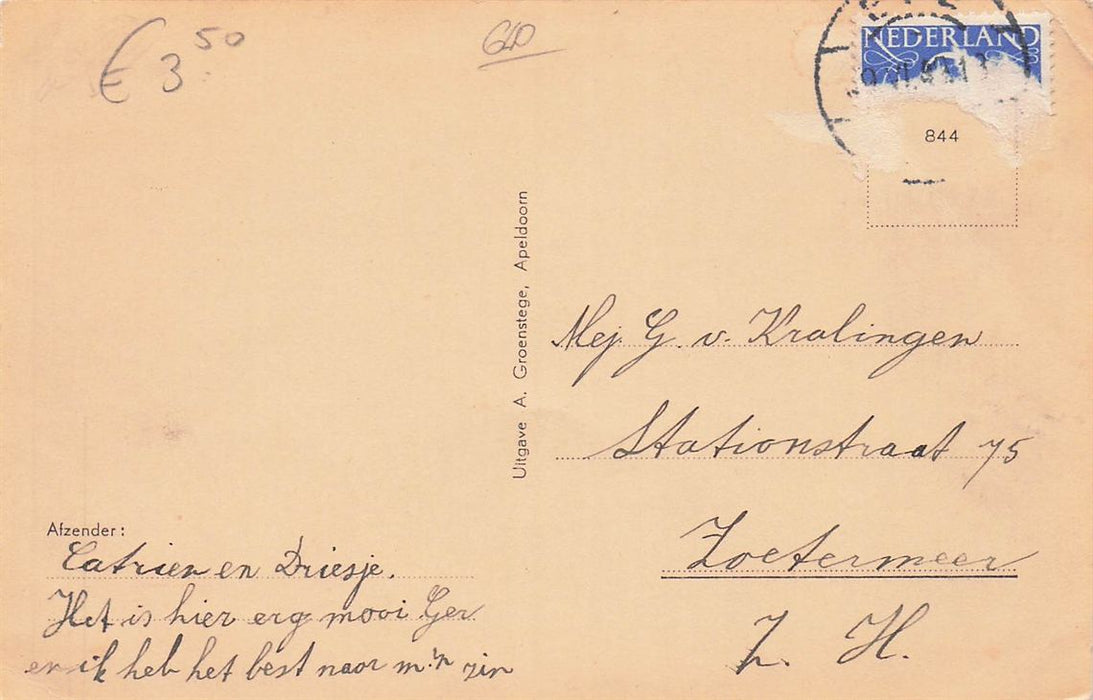 € 3 50
GLD
NEDERLAND
844
Uitgave A. Groenstege, Apeldoorn
Mej. G. v. Kralingen
Stationstraat 75
Zoetermeer
Z. H.
Afzender:
Catrien en Driesje.
Het is hier erg mooi Ger
en ik heb het best naar m'n zin